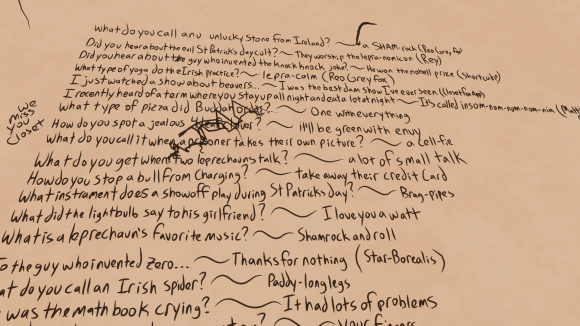 What do you call an unlucky stone from Ireland? ~ a SHAM-rock (Reo Grey Fox)
Did you hear about the evil St Patricks day cult? ~ They worship the lepra-nomicon (Rey)
Did you hear about the guy who invented the knock knock joke? ~ He won the nobell prize (shortcake)
What type of yoga do the Irish practice? ~ lepra-calm (Reo Grey Fox)
I just watched a show about beavers... ~ I was the best dam show I've ever seen
I recently heard of a term where you stay up all night and eat a lot at night ~ It's called insom-nom-nom-nom-nia
What type of pizza did Buddah order? ~ One with everything
We miss you Closet
How do you spot a jealous ~ it'll be green with envy
What do you call it when a prisoner takes their own picture? ~ a Cell-fie
What do you get when two leprechauns talk? ~ a lot of small talk
How do you stop a bull from charging? ~ take away their credit card
What instrament does a showoff play during St Patricks day? ~ Brag-pipes
What did the lightbulb say to his girlfriend? ~ I love you a watt
What is a leprechaun's favorite music? ~ Shamrock and roll
To the guy who invented zero... ~ Thanks for nothing (Star-Borealis)
at do you call an Irish spider? ~ Paddy-long legs
was the math book crying? ~ It had lots of problems